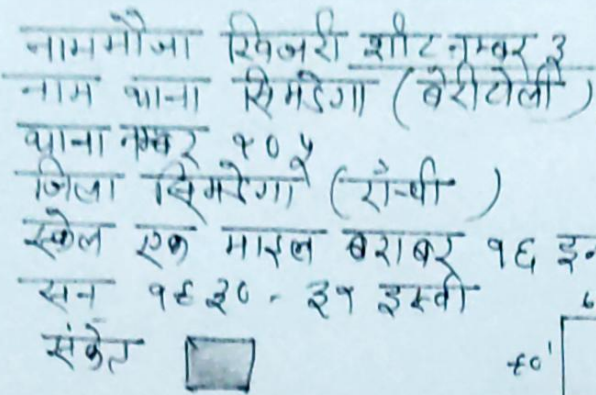 नाम मौजा खिजरी शीट नम्बर ३
नाम थाना सिमडेगा (बेरीटोली)
थाना नम्बर १०५
जिला सिमडेगा (राँची)
स्केल एक माइल बराबर १६ इन
सन १९३०-३१ इस्वी
संकेत